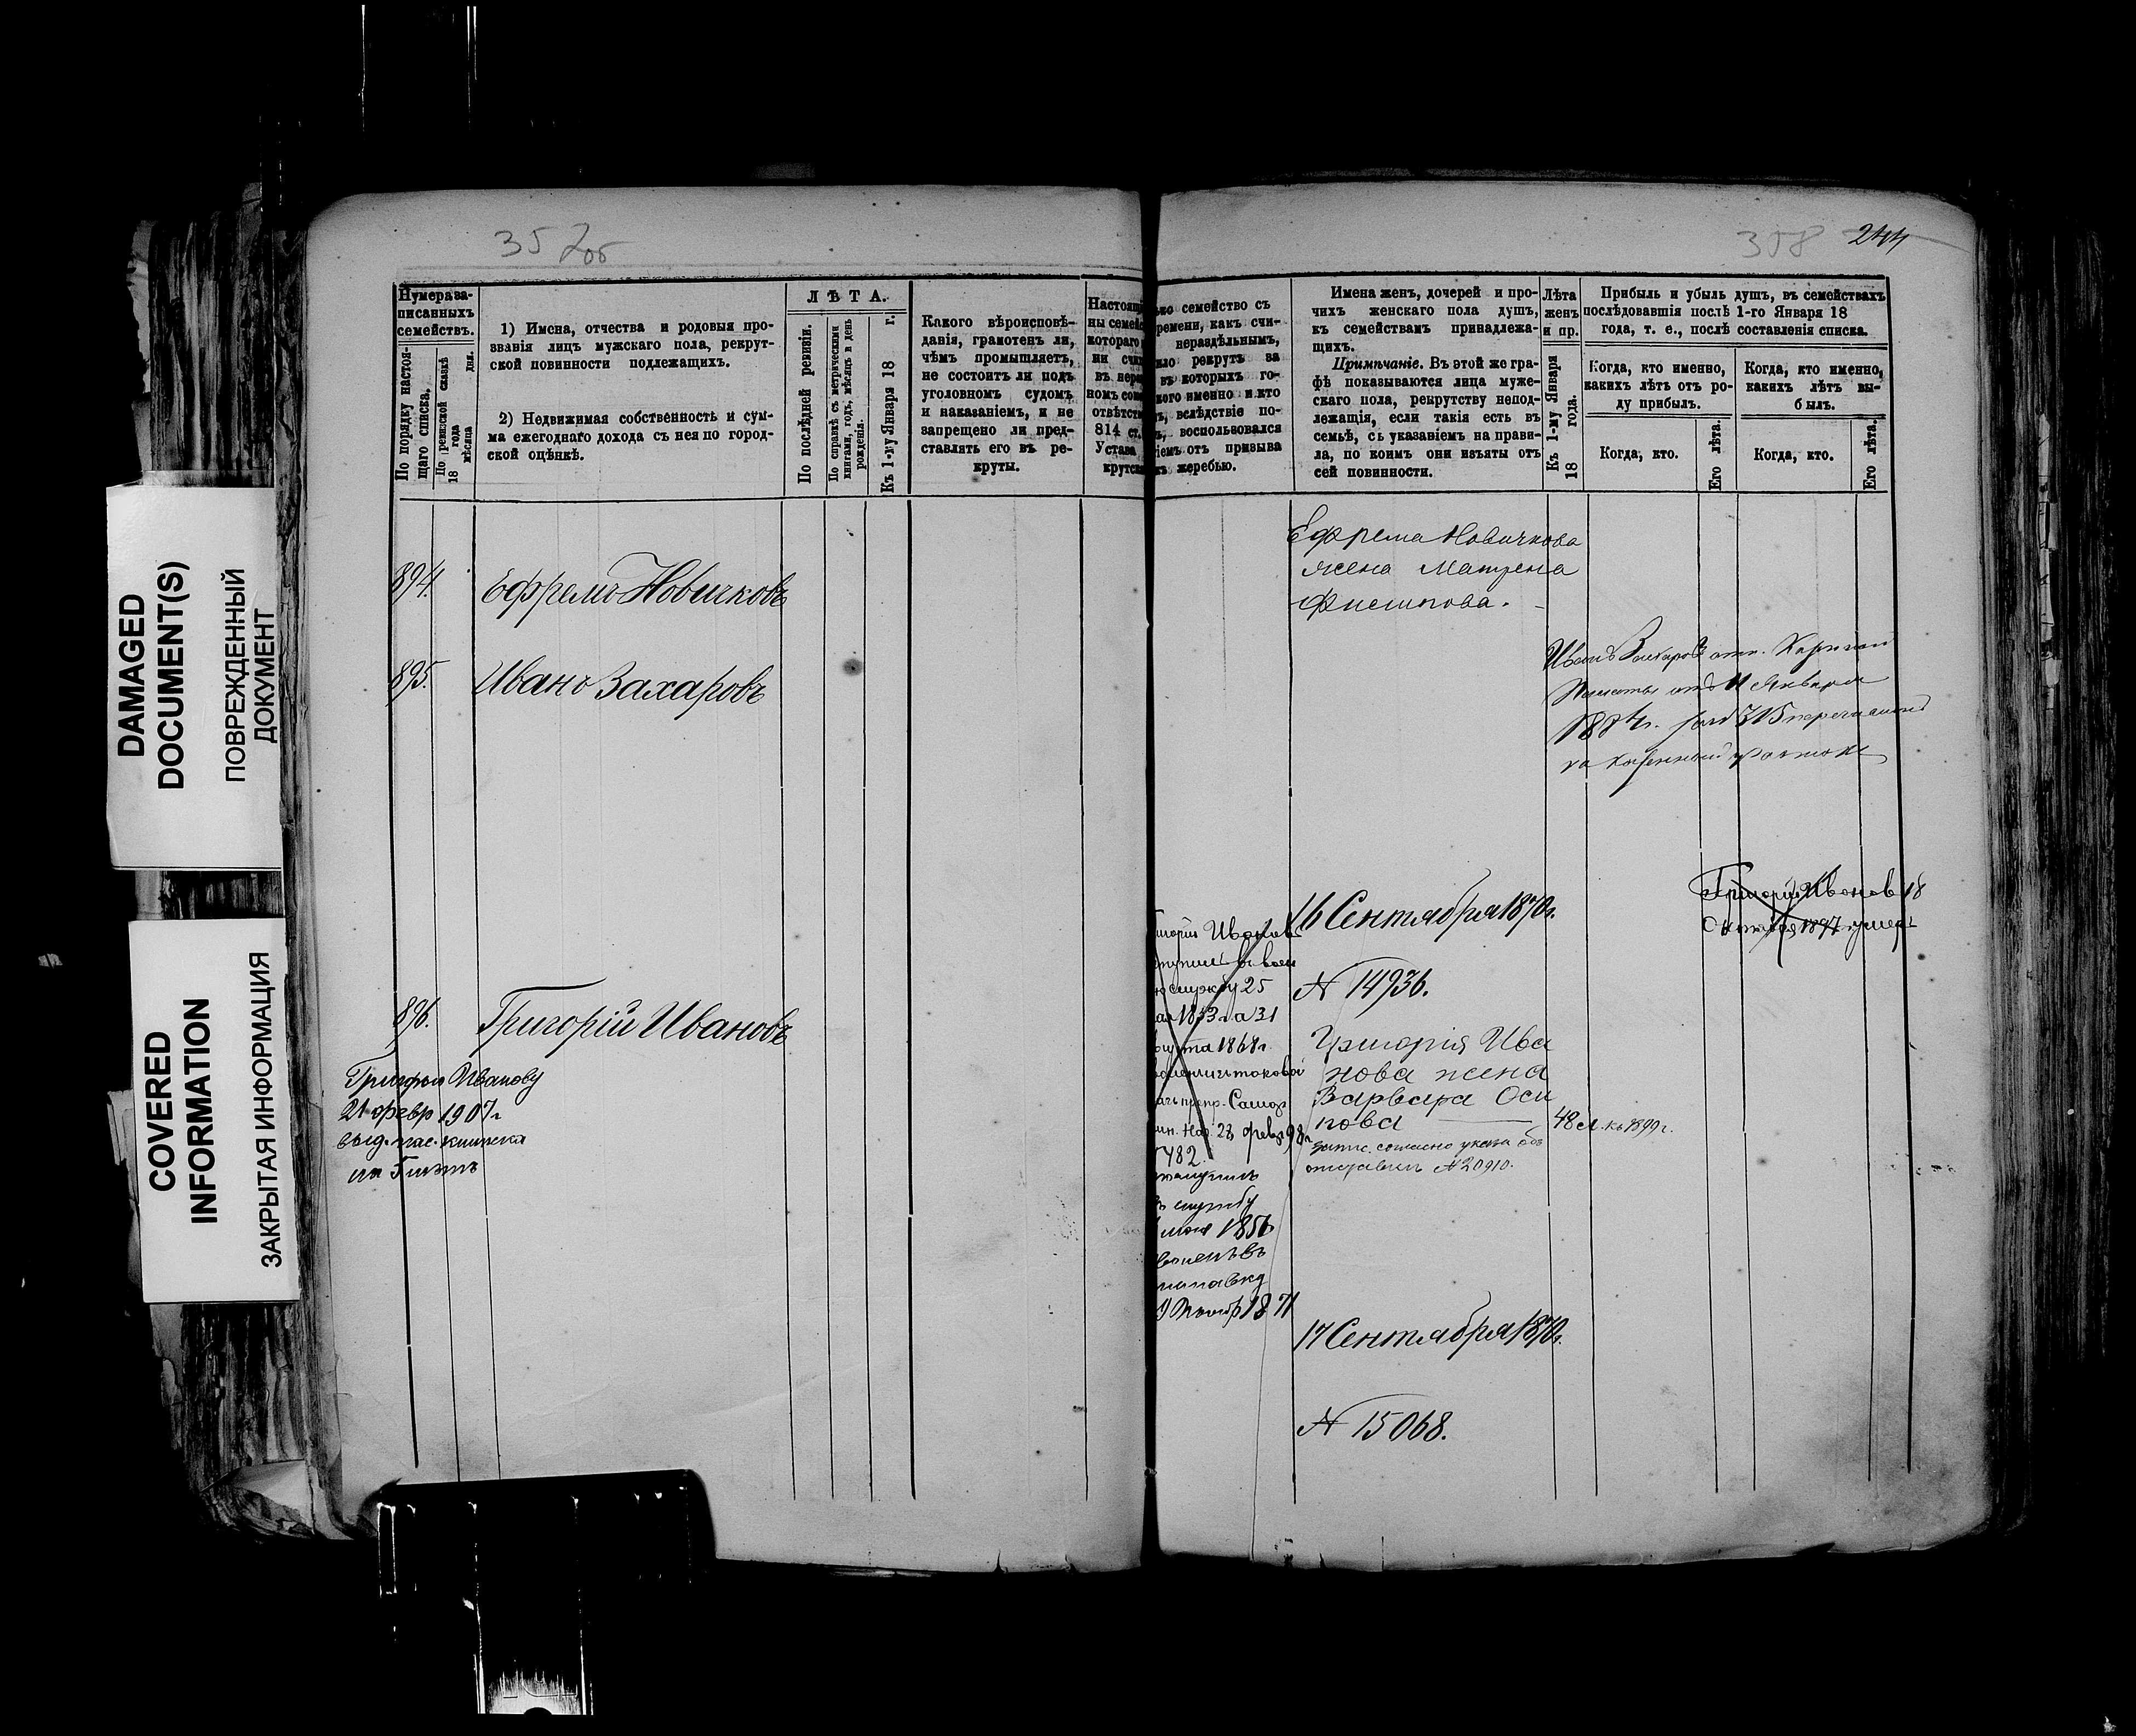 DAMAGED
DOCUMENT(S)
ПОВРЕЖДЕННЫЙ
ДОКУМЕНТ
COVERED
INFORMATION
ЗАКРЫТАЯ ИНФОРМАЦИЯ
357об
Нумера за-
писанныхъ
семействъ.
По порядку настоя-
щаго списка.
По ревизской сказкѣ
18 года
мѣсяца дня.
1) Имена, отчества и родовыя про-
званія лицъ мужскаго пола, рекрут-
ской повинности подлежащихъ.
2) Недвижимая собственность и сум-
ма ежегоднаго дохода съ нея по город-
ской оцѣнкѣ.
ЛѢТА.
По послѣдней ревизіи.
По справкѣ съ метрическими
книгами, годъ, мѣсяцъ и день
рожденія.
Къ 1-му Января 18 г.
Какого вѣроисповѣ-
данія, грамотенъ ли,
чѣмъ промышляетъ,
не состоитъ ли подъ
уголовнымъ судомъ
и наказаніемъ, и не
запрещено ли пред-
ставлять его въ ре-
круты.
Настоящ
ны семей
котораго
ни счи
въ нера
номъ сос
отвѣтств
814 ст.
Устава
крутск
894. Ефремъ Новичковъ
895. Иванъ Захаровъ
896. Григорій Ивановъ
Григорью Иванову
21 февр 1907 г
выд. пас. книжка
358 244
ько семейство съ
ремени, какъ счи-
нераздѣльнымъ,
ило рекрутъ за
въ которыхъ го-
кого именно и кто
ъ, вслѣдствіе по-
ъ, воспользовался
іемъ отъ призыва
къ жеребью.
Имена женъ, дочерей и про-
чихъ женскаго пола душъ,
къ семействамъ принадлежа-
щихъ.
Примѣчаніе. Въ этой же гра-
фѣ показываются лица муже-
скаго пола, рекрутству непод-
лежащія, если такія есть въ
семьѣ, съ указаніемъ на прави-
ла, по коимъ они изъяты отъ
сей повинности.
Лѣта
женъ
и пр.
Къ 1-му Января
18 года.
Прибыль и убыль душъ, въ семействахъ
послѣдовавшія послѣ 1-го Января 18
года, т. е., послѣ составленія списка.
Когда, кто именно,
какихъ лѣтъ отъ ро-
ду прибылъ.
Когда, кто.
Его лѣта.
Когда, кто именно,
какихъ лѣтъ вы-
былъ.
Когда, кто.
Его лѣта.
Ефрема Новичкова
жена Матрена
Филипова.
Иванъ Захаровъ
Палаты отъ 11 Января
1884г.
16 Сентября 1870г.
N 14936.
Григорій Иванов 18
Октября 1897 умеръ
Иванов
службу 25
1853 г а 31
1868 г.
28 февр 98 г
5482
въ службу
1856
1871
Григорія Ива
нова жена
Варвара Оси
пова 48 л. къ 1899 г.
согласно указа объ
отставкѣ N 20910.
17 Сентября 1870г.
N 15068.